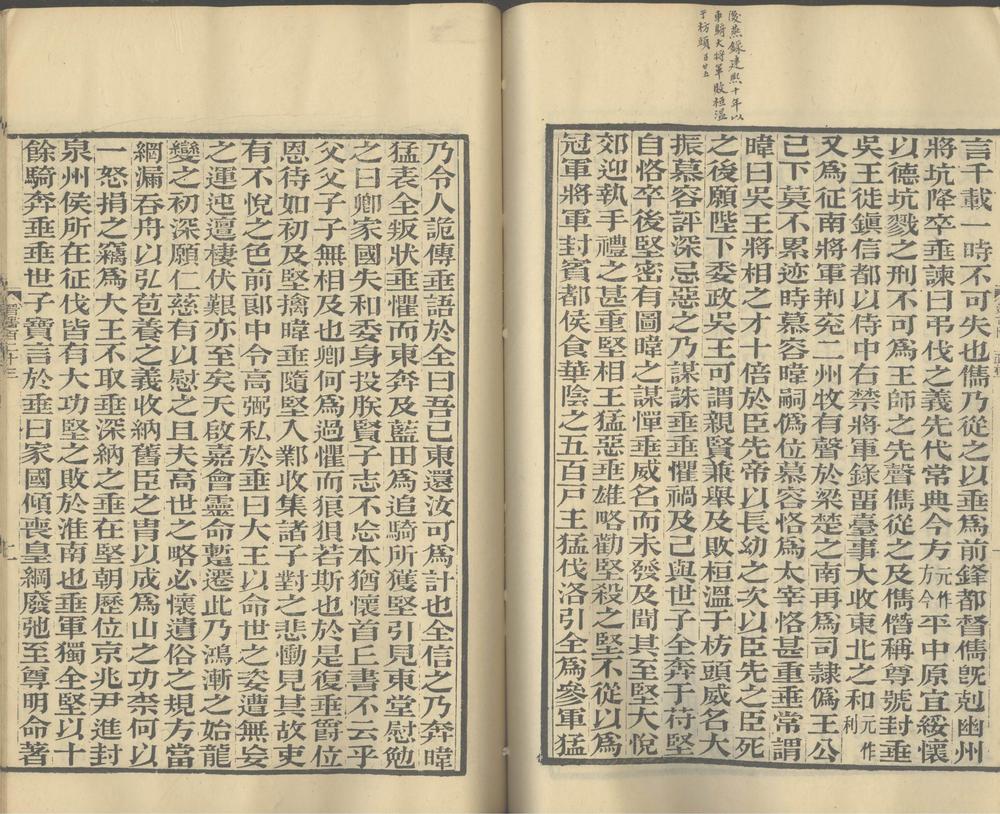 後燕錄建熙十年以
車騎大將軍敗桓溫
于枋頭
言千載一時不可失也儁乃從之以垂為前鋒都督儁既剋幽州
將坑降卒垂諫曰弔伐之義先代常典今方元作方今平中原宜綏懷
以德坑戮之刑不可為王師之先聲儁從之及儁僭稱尊號封垂
吳王徙鎮信都以侍中右禁將軍錄畱臺事大收東北之和元作利
又為征南將軍荊兗二州牧有聲於梁楚之南再為司隷偽王公
已下莫不累迹時慕容暐嗣偽位慕容恪為太宰恪甚重垂常謂
暐曰吳王將相之才十倍於臣先帝以長幼之次以臣先之臣死
之後願陛下委政吳王可謂親賢兼舉及敗桓溫于枋頭威名大
振慕容評深忌惡之乃謀誅垂垂懼禍及己與世子全奔于苻堅
自恪卒後堅密有圖暐之謀憚垂威名而未發及聞其至堅大悅
郊迎執手禮之甚重堅相王猛惡垂雄略勸堅殺之堅不從以為
冠軍將軍封賓都侯食華陰之五百戶王猛伐洛引全為參軍猛
乃令人詭傳垂語於全曰吾已東還汝可為計也全信之乃奔暐
猛表全叛狀垂懼而東奔及藍田為追騎所獲堅引見東堂慰勉
之曰卿家國失和委身投朕賢子志不忘本猶懷首丘書不云乎
父父子子無相及也卿何為過懼而狼狽若斯也於是復垂爵位
恩待如初及堅擒暐垂隨堅入鄴收集諸子對之悲慟見其故吏
有不悅之色前郎中令高弼私於垂曰大王以命世之姿遭無妄
之運迍邅棲伏艱亦至矣天啟嘉會靈命蹔遷此乃鴻漸之始龍
變之初深願仁慈有以慰之且夫高世之略必懷遺俗之規方當
網漏吞舟以弘苞養之義收納舊臣之冑以成為山之功柰何以
一怒捐之竊為大王不取垂深納之垂在堅朝歷位京兆尹進封
泉州侯所在征伐皆有大功堅之敗於淮南也垂軍獨全堅以十
餘騎奔垂垂世子寶言於垂曰家國傾喪皇綱廢弛至尊明命著